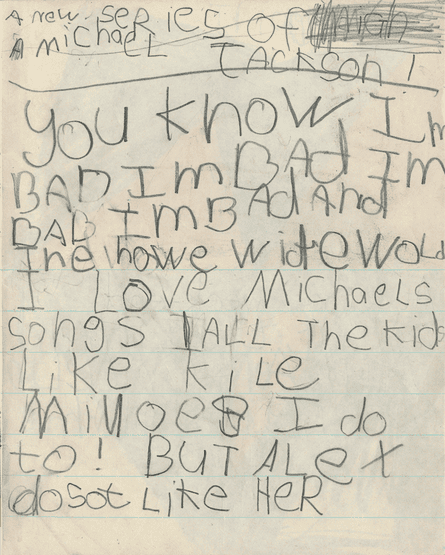 A new series of
A michael Jackson!
you know Im
BAD Im BAd Im
BAD Im BAd And
BAD
The howe wide wold
I Love Michaels
songs ALL The kids
Like kile
I do
to! BUT ALex
dosot Like HER